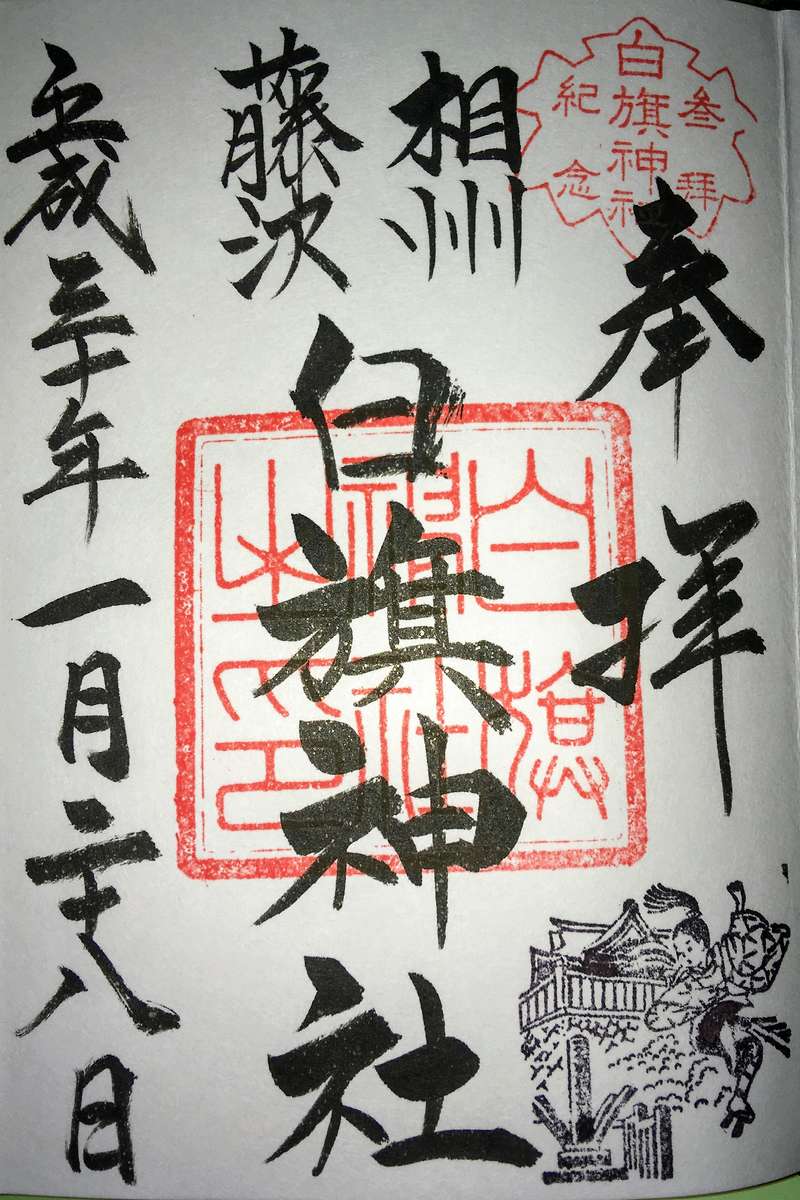 白旗神社
参拝
紀念
奉拝
相州
藤沢
白旗神社
白旗
神社
之印
平成三十年一月二十八日